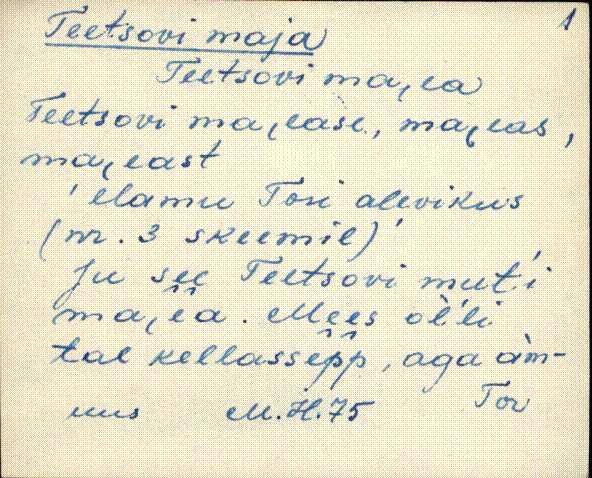 1
Teetsovi maja
Teetsovi ma,ea
Teetsovi ma,ease, ma,eas,
ma,east
'elamu Tori alevikus
(nr. 3 skeemil)'
Ju see Teetsovi mut'i
ma,ea. Mees òl'li
tal kellassepp, aga àm-
mus M.H.75 Tor